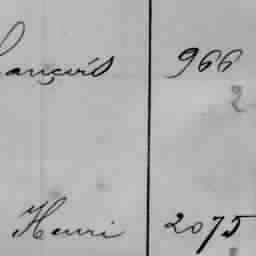 ançois 966
2
Henri 2075